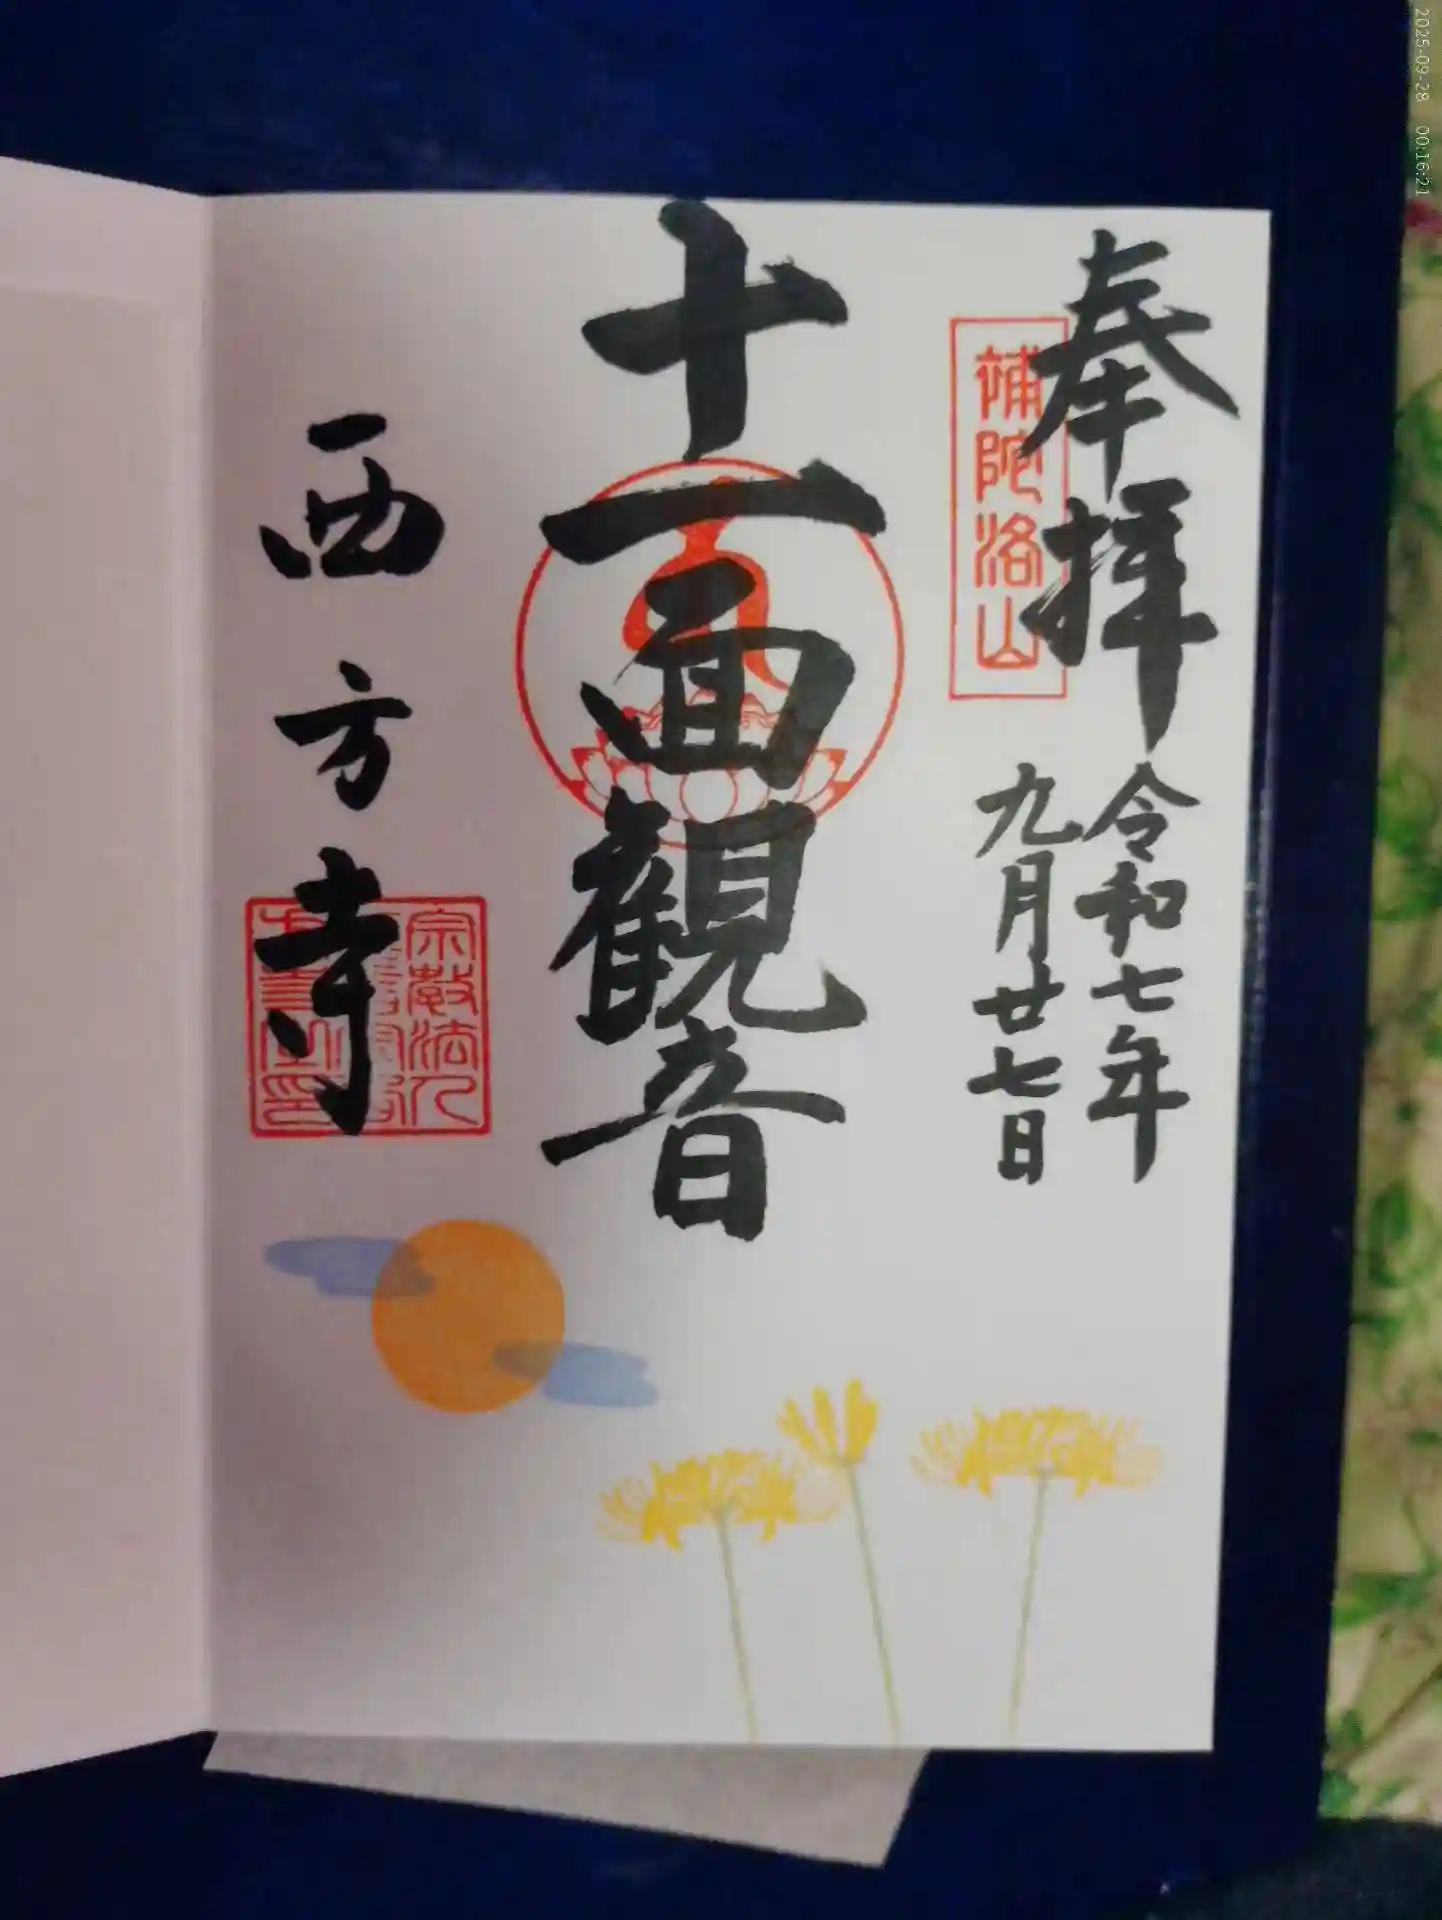 奉拝
補陀洛山
令和七年
九月廿七日
十一面観音
西方寺
宗教法人
2025-09-28 00:16:21